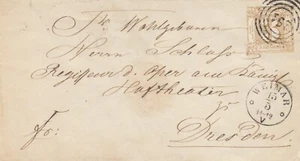 Sr. Wohlgeboren
Herrn Schloß
Regisseur d. Oper am Königl
Hoftheater
zu
Dresden
fr:
WEIMAR
15
5